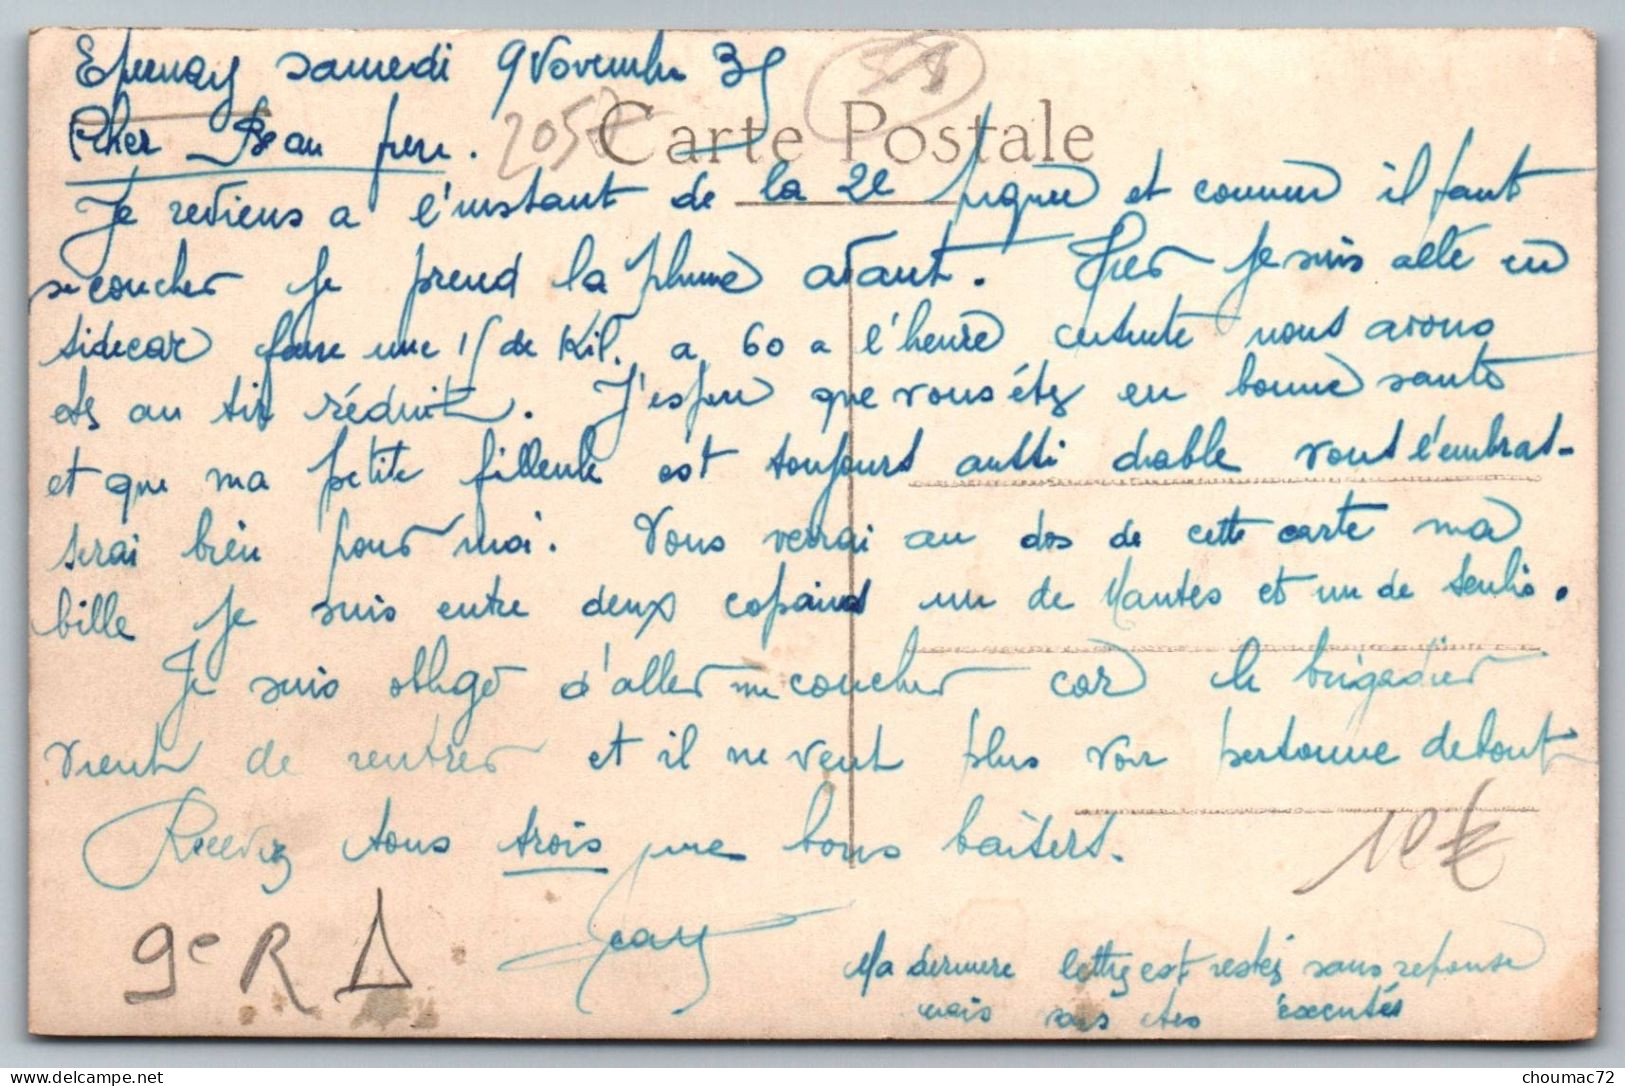 Epernay samedi 9 Novembre 35
Cher Beau frere.
2057
Carte Postale
Je reviens a l'instant de la 2e piqure et comme il faut
se coucher je prend la plume avant. Hier je suis allé en
sidecar faire une 1/ de Kil. a 60 a l'heure ensuite nous avons
etes au tir réduit. J'espere que vous étes en bonne santé
et que ma petite filleule est toujours aussi diable vous l'embras-
serai bien pour moi. Vous verrai au dos de cette carte ma
bille je suis entre deux copains un de Mantes et un de Senlis.
Je suis obligé d'aller me coucher car le brigadier
vient de rentrer et il ne veut plus voir personne debout
Recevez tous trois mes bons baisers.
10€
Jean
9e R Δ
Ma derniere lettre est restez sans reponse
mais sans etes executés
choumac72